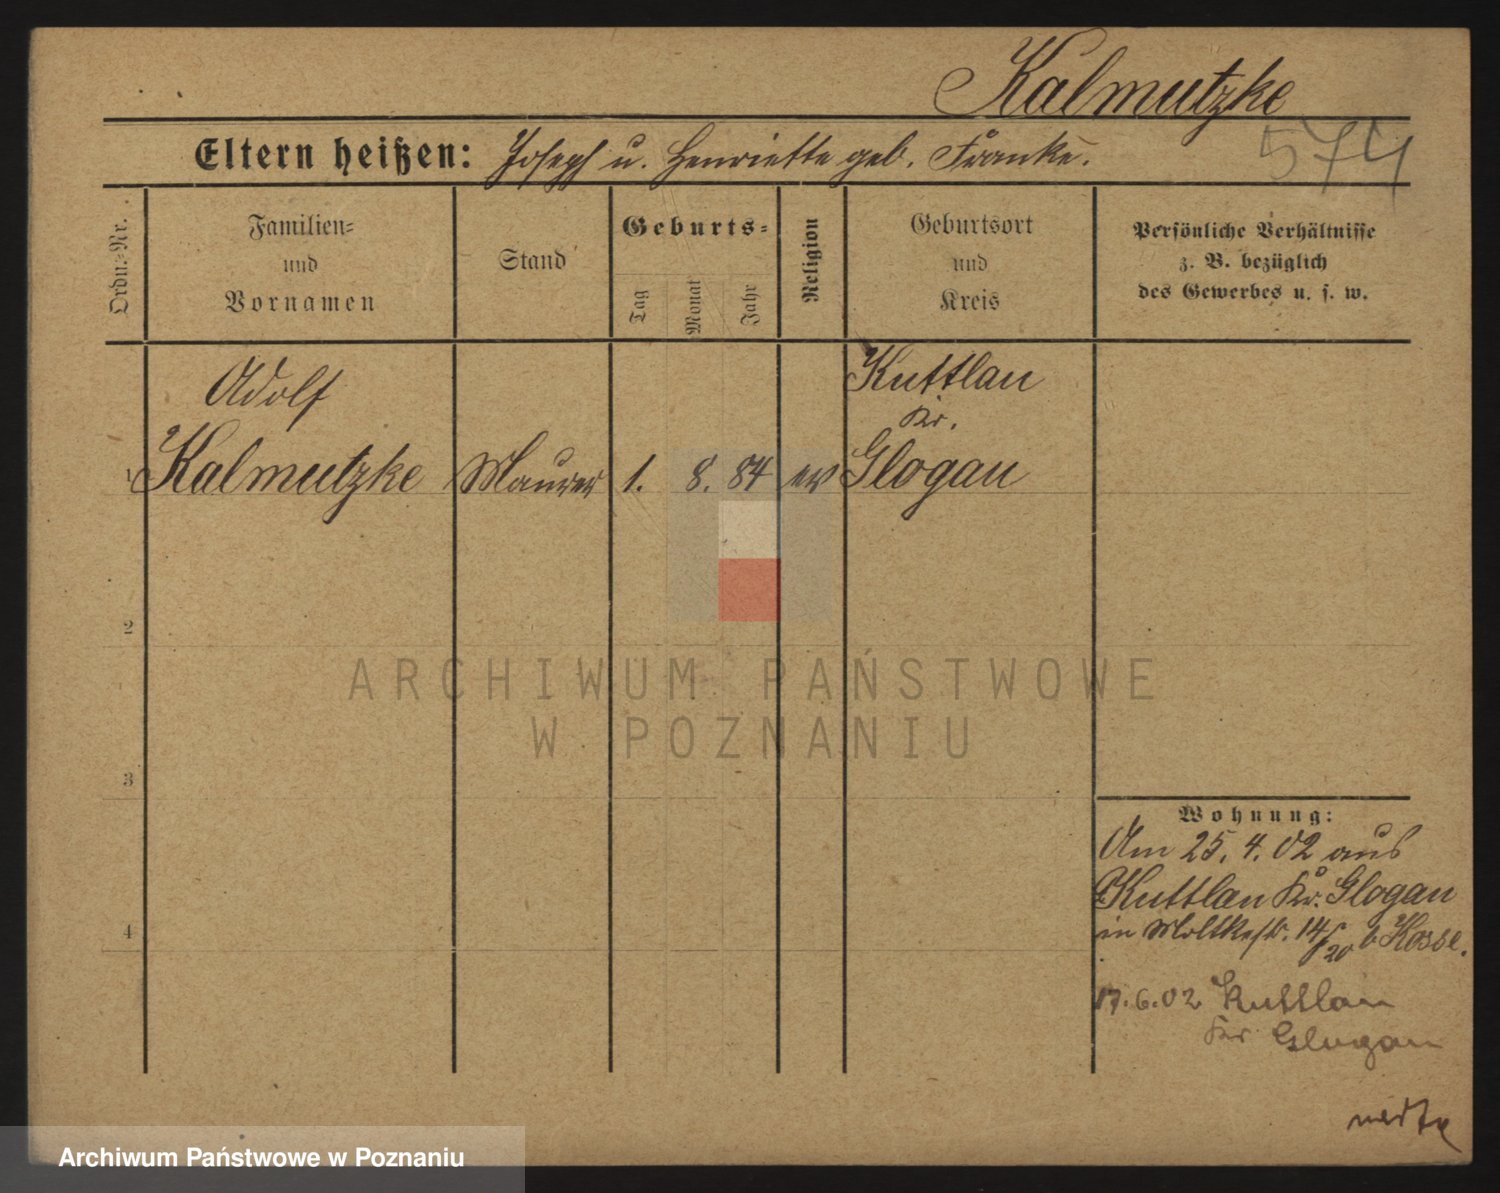 Kalmutzke
Eltern heißen: Joseph u. Henriette geb. Franke.
574
Ordn.-Nr.
Familien-
und
Vornamen
Stand
Geburts-
Tag
Monat
Jahr
Religion
Geburtsort
und
Kreis
Persönliche Verhältnisse
z. B. bezüglich
des Gewerbes u. s. w.
Adolf
1 Kalmutzke Maurer 1. 8. 84 ev
Kuttlau
Kr.
Glogau
2
3
4
ARCHIWUM PAŃSTWOWE
W POZNANIU
Wohnung:
Am 25. 4. 02 aus
Kuttlau Kr. Glogau
in Moltkestr. 14/20 b Kosse.
17. 6. 02 Kuttlau
Kr Glogau
Archiwum Państwowe w Poznaniu